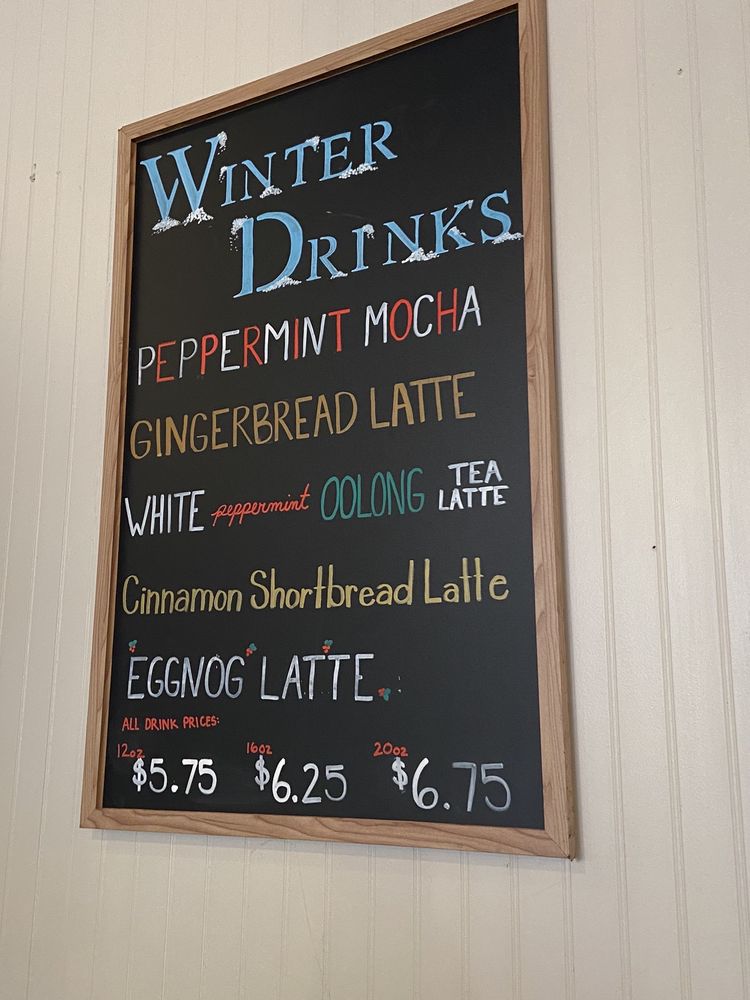 WINTER
DRINKS
PEPPERMINT MOCHA
GINGERBREAD LATTE
WHITE peppermint OOLONG TEA LATTE
Cinnamon Shortbread Latte
EGGNOG LATTE
ALL DRINK PRICES:
12oz $5.75 16oz $6.25 20oz $6.75